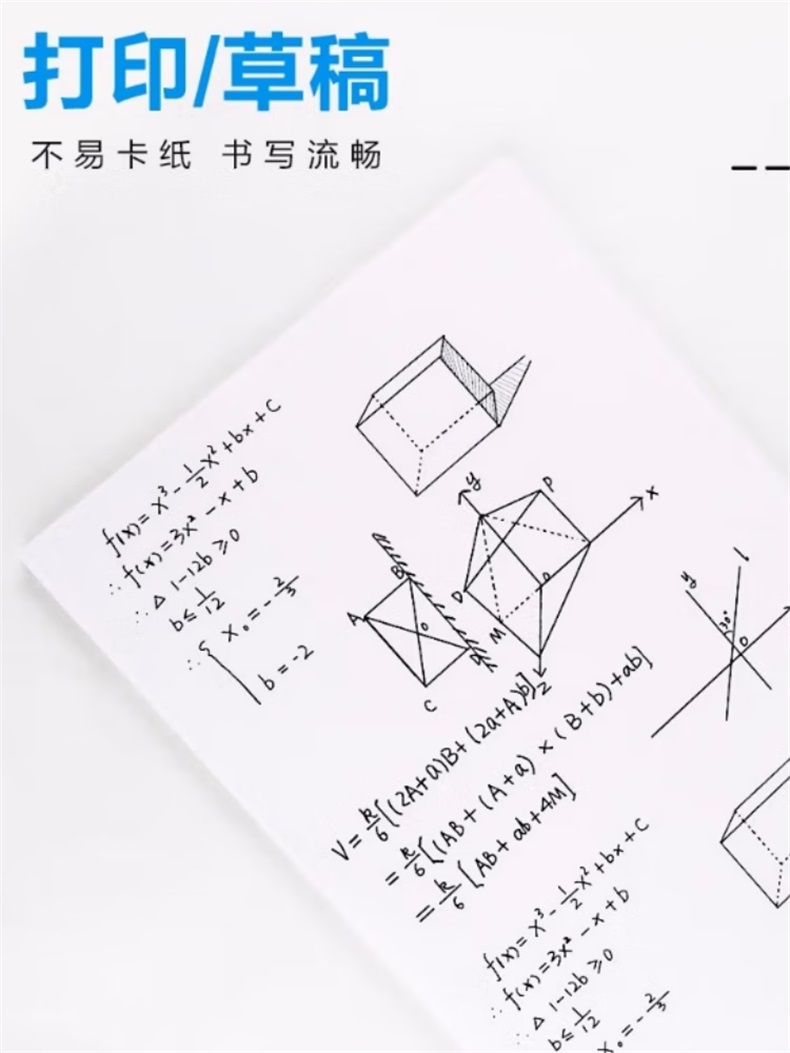 打印/草稿
不易卡纸 书写流畅
f(x)=x³-½x²+bx+C
∴f(x)=3x²-x+b
∴△ 1-12b≥0
b≤1/12
∴{ x₀=-2/3
b=-2
y
P
x
B
D
O
A
O
M
D
Z
C
y
l
30°
O
V=k/6[(2A+a)B+(2a+A)b]
=k/6[(AB+(A+a)×(B+b)+ab]
=k/6[AB+ab+4M]
f(x)=x³-½x²+bx+C
∴f(x)=3x²-x+b
∴△ 1-12b≥0
b≤1/12
x₀=-2/3